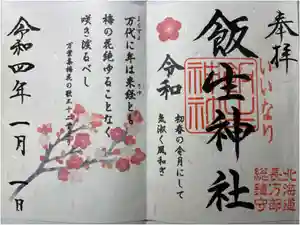 奉拝
いいなり
飯生神社
北海道
長万部
総鎮守
令和
初春の令月にして
気淑く風和ぎ
万代に年は来経とも
梅の花絶ゆることなく
咲き渡るべし
万葉集梅花の歌三十二首
令和四年一月一日